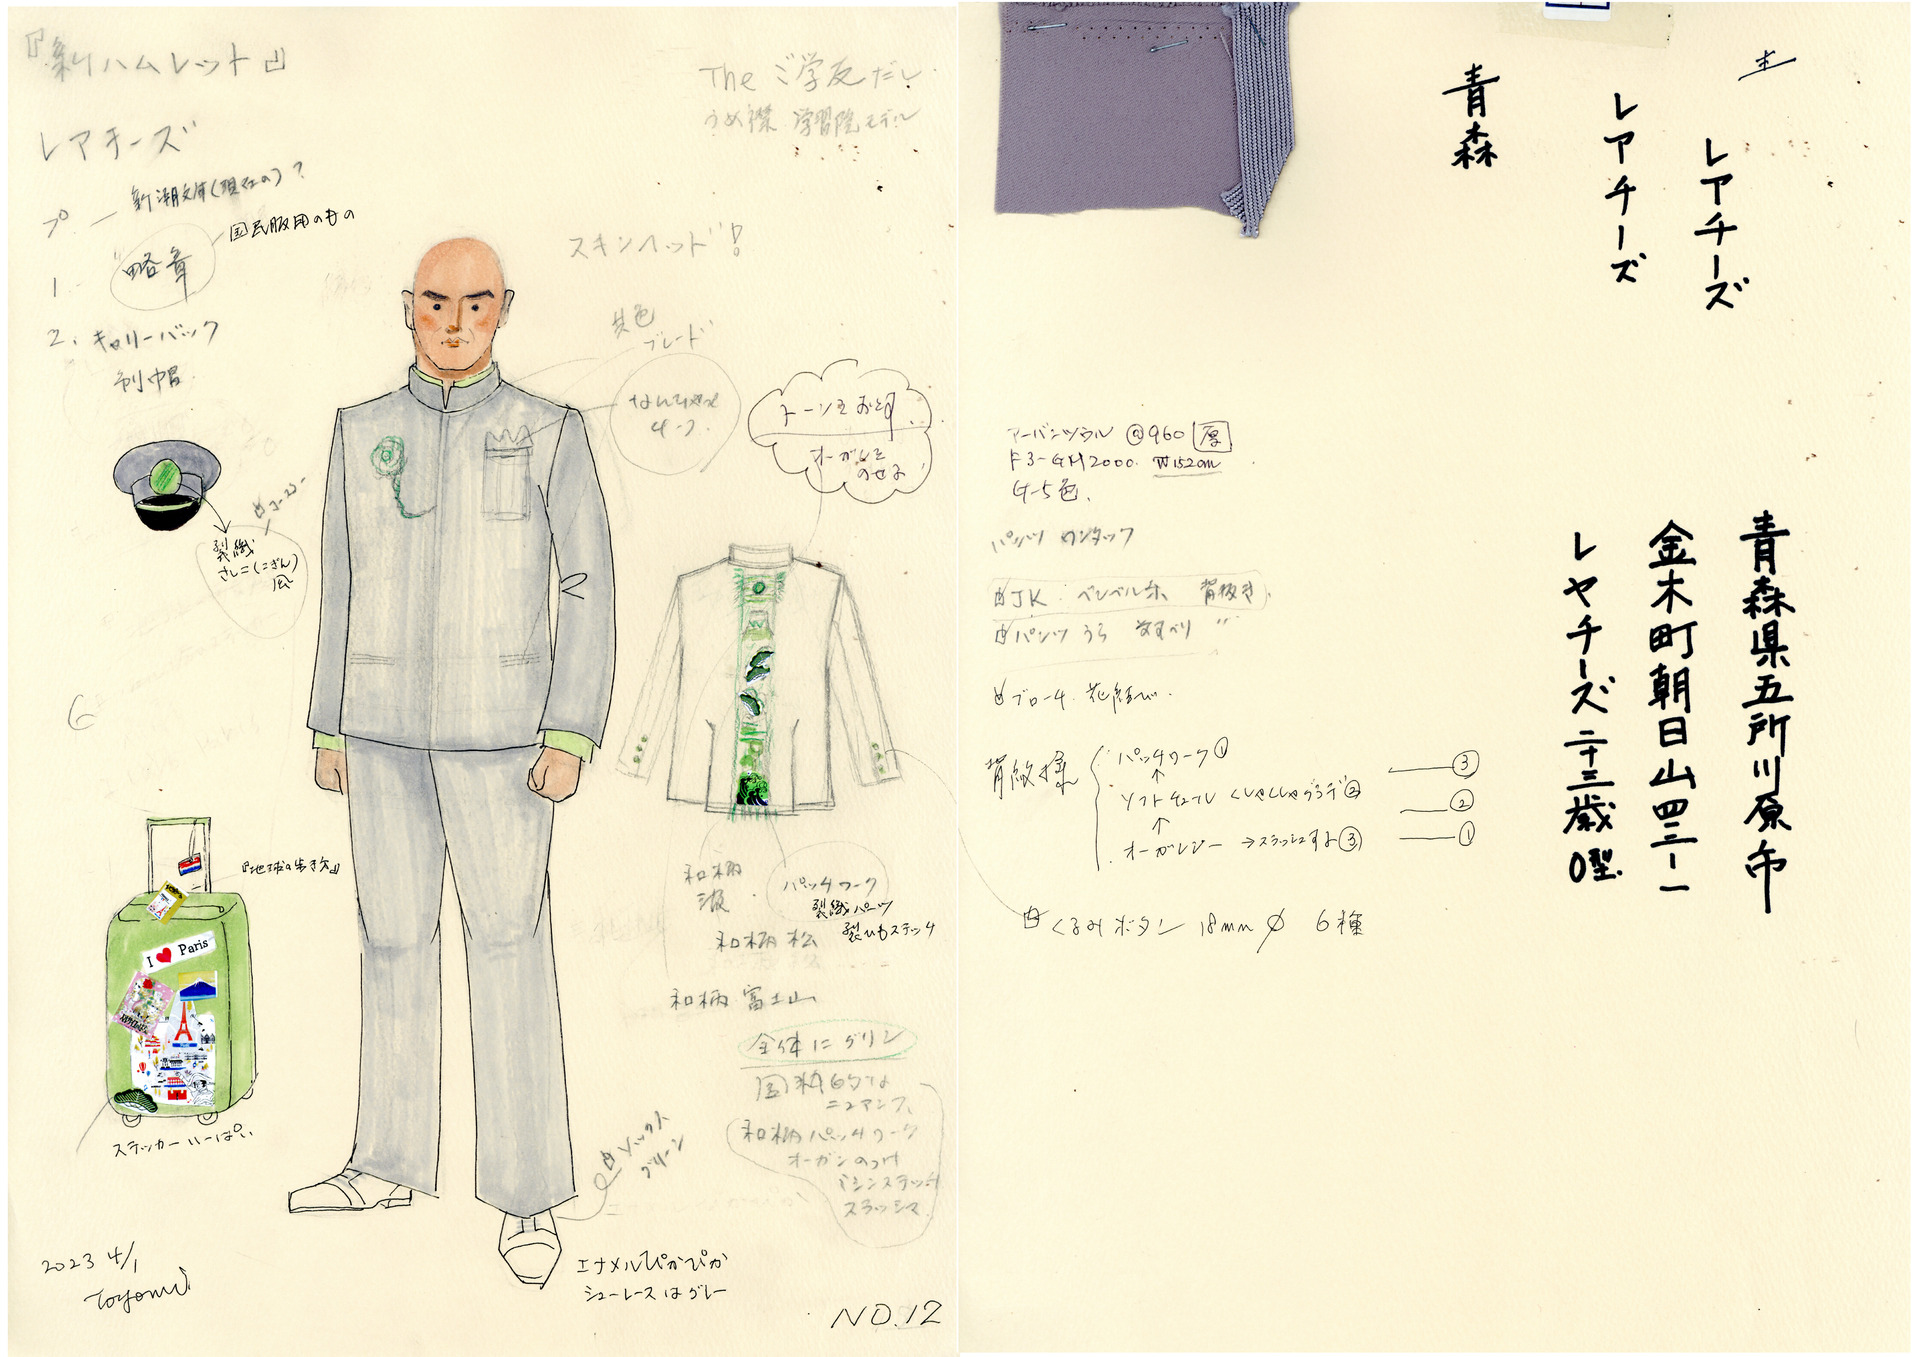 『新ハムレット』
レアチーズ
プ ー 新潮文庫(現在の)?
1. 略章
国民服用のもの
2. キャリーバック
制帽
The ご学友だし
うめ襟 学習院モデル
スキンヘッド!
共色
ブレード
なんちゃって
チーフ
トーンをおとす
オーガンを
のせる
裂織
さしこ(こぎん)
風
『地球の歩き方』
I ♥ Paris
ステッカーいーぱい
和柄
波
パッチワーク
裂織パーツ
裂ひもステッチ
和柄 松
和柄 富士山
全体にグリン
国粋的な
ニュアンス
和柄パッチワーク
オーガンのっけ
ミシンステッチ
スラッシュ
ソックス
グリーン
エナメルぴかぴか
シューレースはグレー
2023 4/1
Toyomi
NO.12
青森
レアチーズ
レアチーズ
アーバンツウル @960 厚
F3-GH2000. W152cm
G-5色.
パンツ ワンタック
JK : ベンベル 背抜き
パンツ うら
ブローチ. 花結び.
背紋様
パッチワーク①
↑
ソフトチュール くしゃくしゃグラデ②
↑
オーガンジー →スラッシュする③
③
②
①
くるみボタン 18mmφ 6種
青森県五所川原市
金木町朝日山四三一一
レヤチーズ 二十三歳 O型.